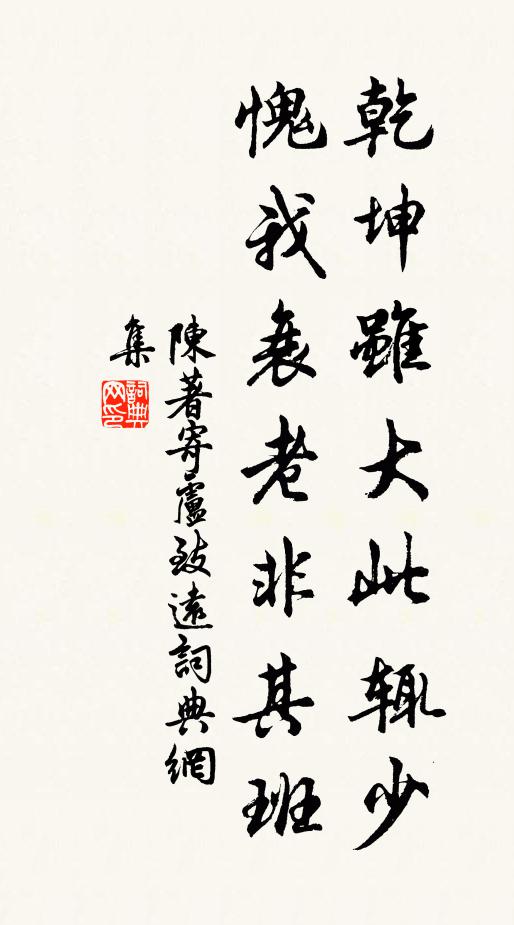 乾坤雖大此輙少
愧我衰老非其班
陳著寄盧致遠詞典網
集
詞典网印